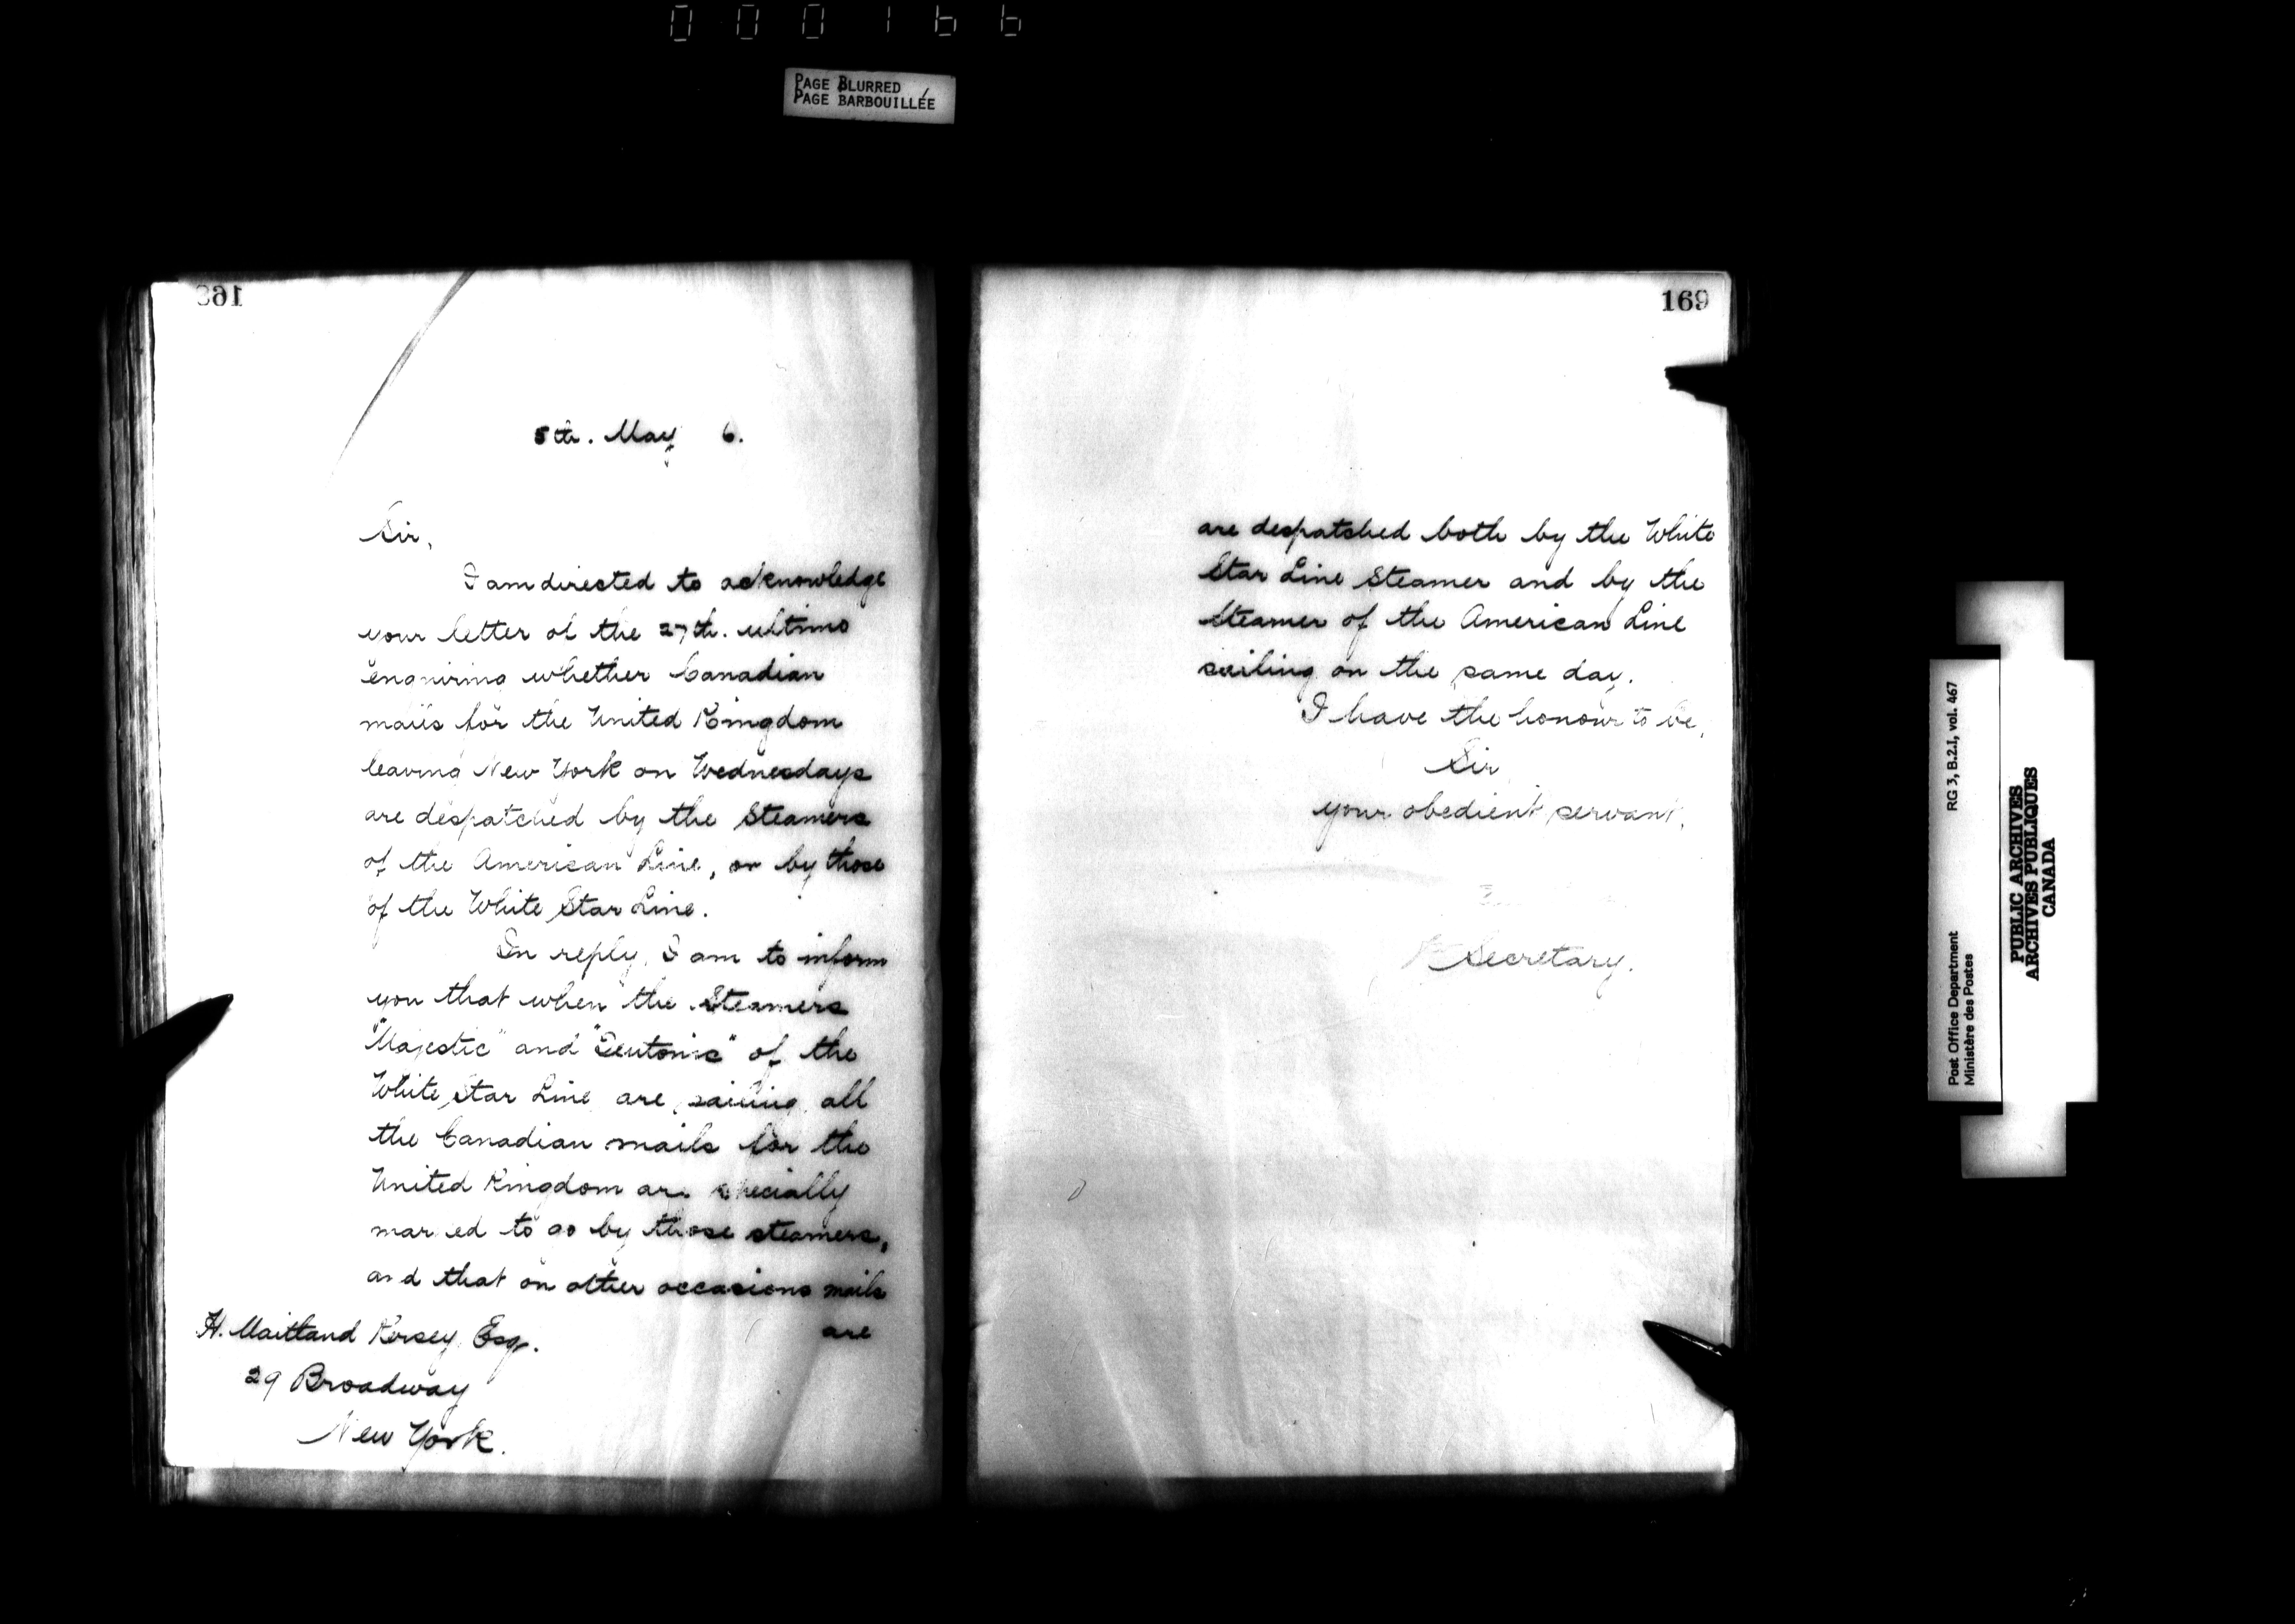 000166
PAGE BLURRED
PAGE BARBOUILLÉE
168
5th. May 6.
Sir,
I am directed to acknowledge
your letter of the 27th. ultimo
enquiring whether Canadian
mails for the United Kingdom
leaving New York on Wednesdays
are despatched by the Steamers
of the American Line, or by those
of the White Star Line.
In reply, I am to inform
you that when the Steamers
"Majestic" and "Teutonic" of the
White Star Line are sailing, all
the Canadian mails for the
United Kingdom are specially
marked to go by those steamers,
and that on other occasions mails
are
H. Maitland Kersey, Esq.
29 Broadway
New York.
169
are despatched both by the White
Star Line Steamer and by the
Steamer of the American Line
sailing on the same day.
I have the honour to be,
Sir
your obedient servant,
Secretary.
RG 3, B.2.I, vol. 467
Post Office Department
Ministère des Postes
PUBLIC ARCHIVES
ARCHIVES PUBLIQUES
CANADA